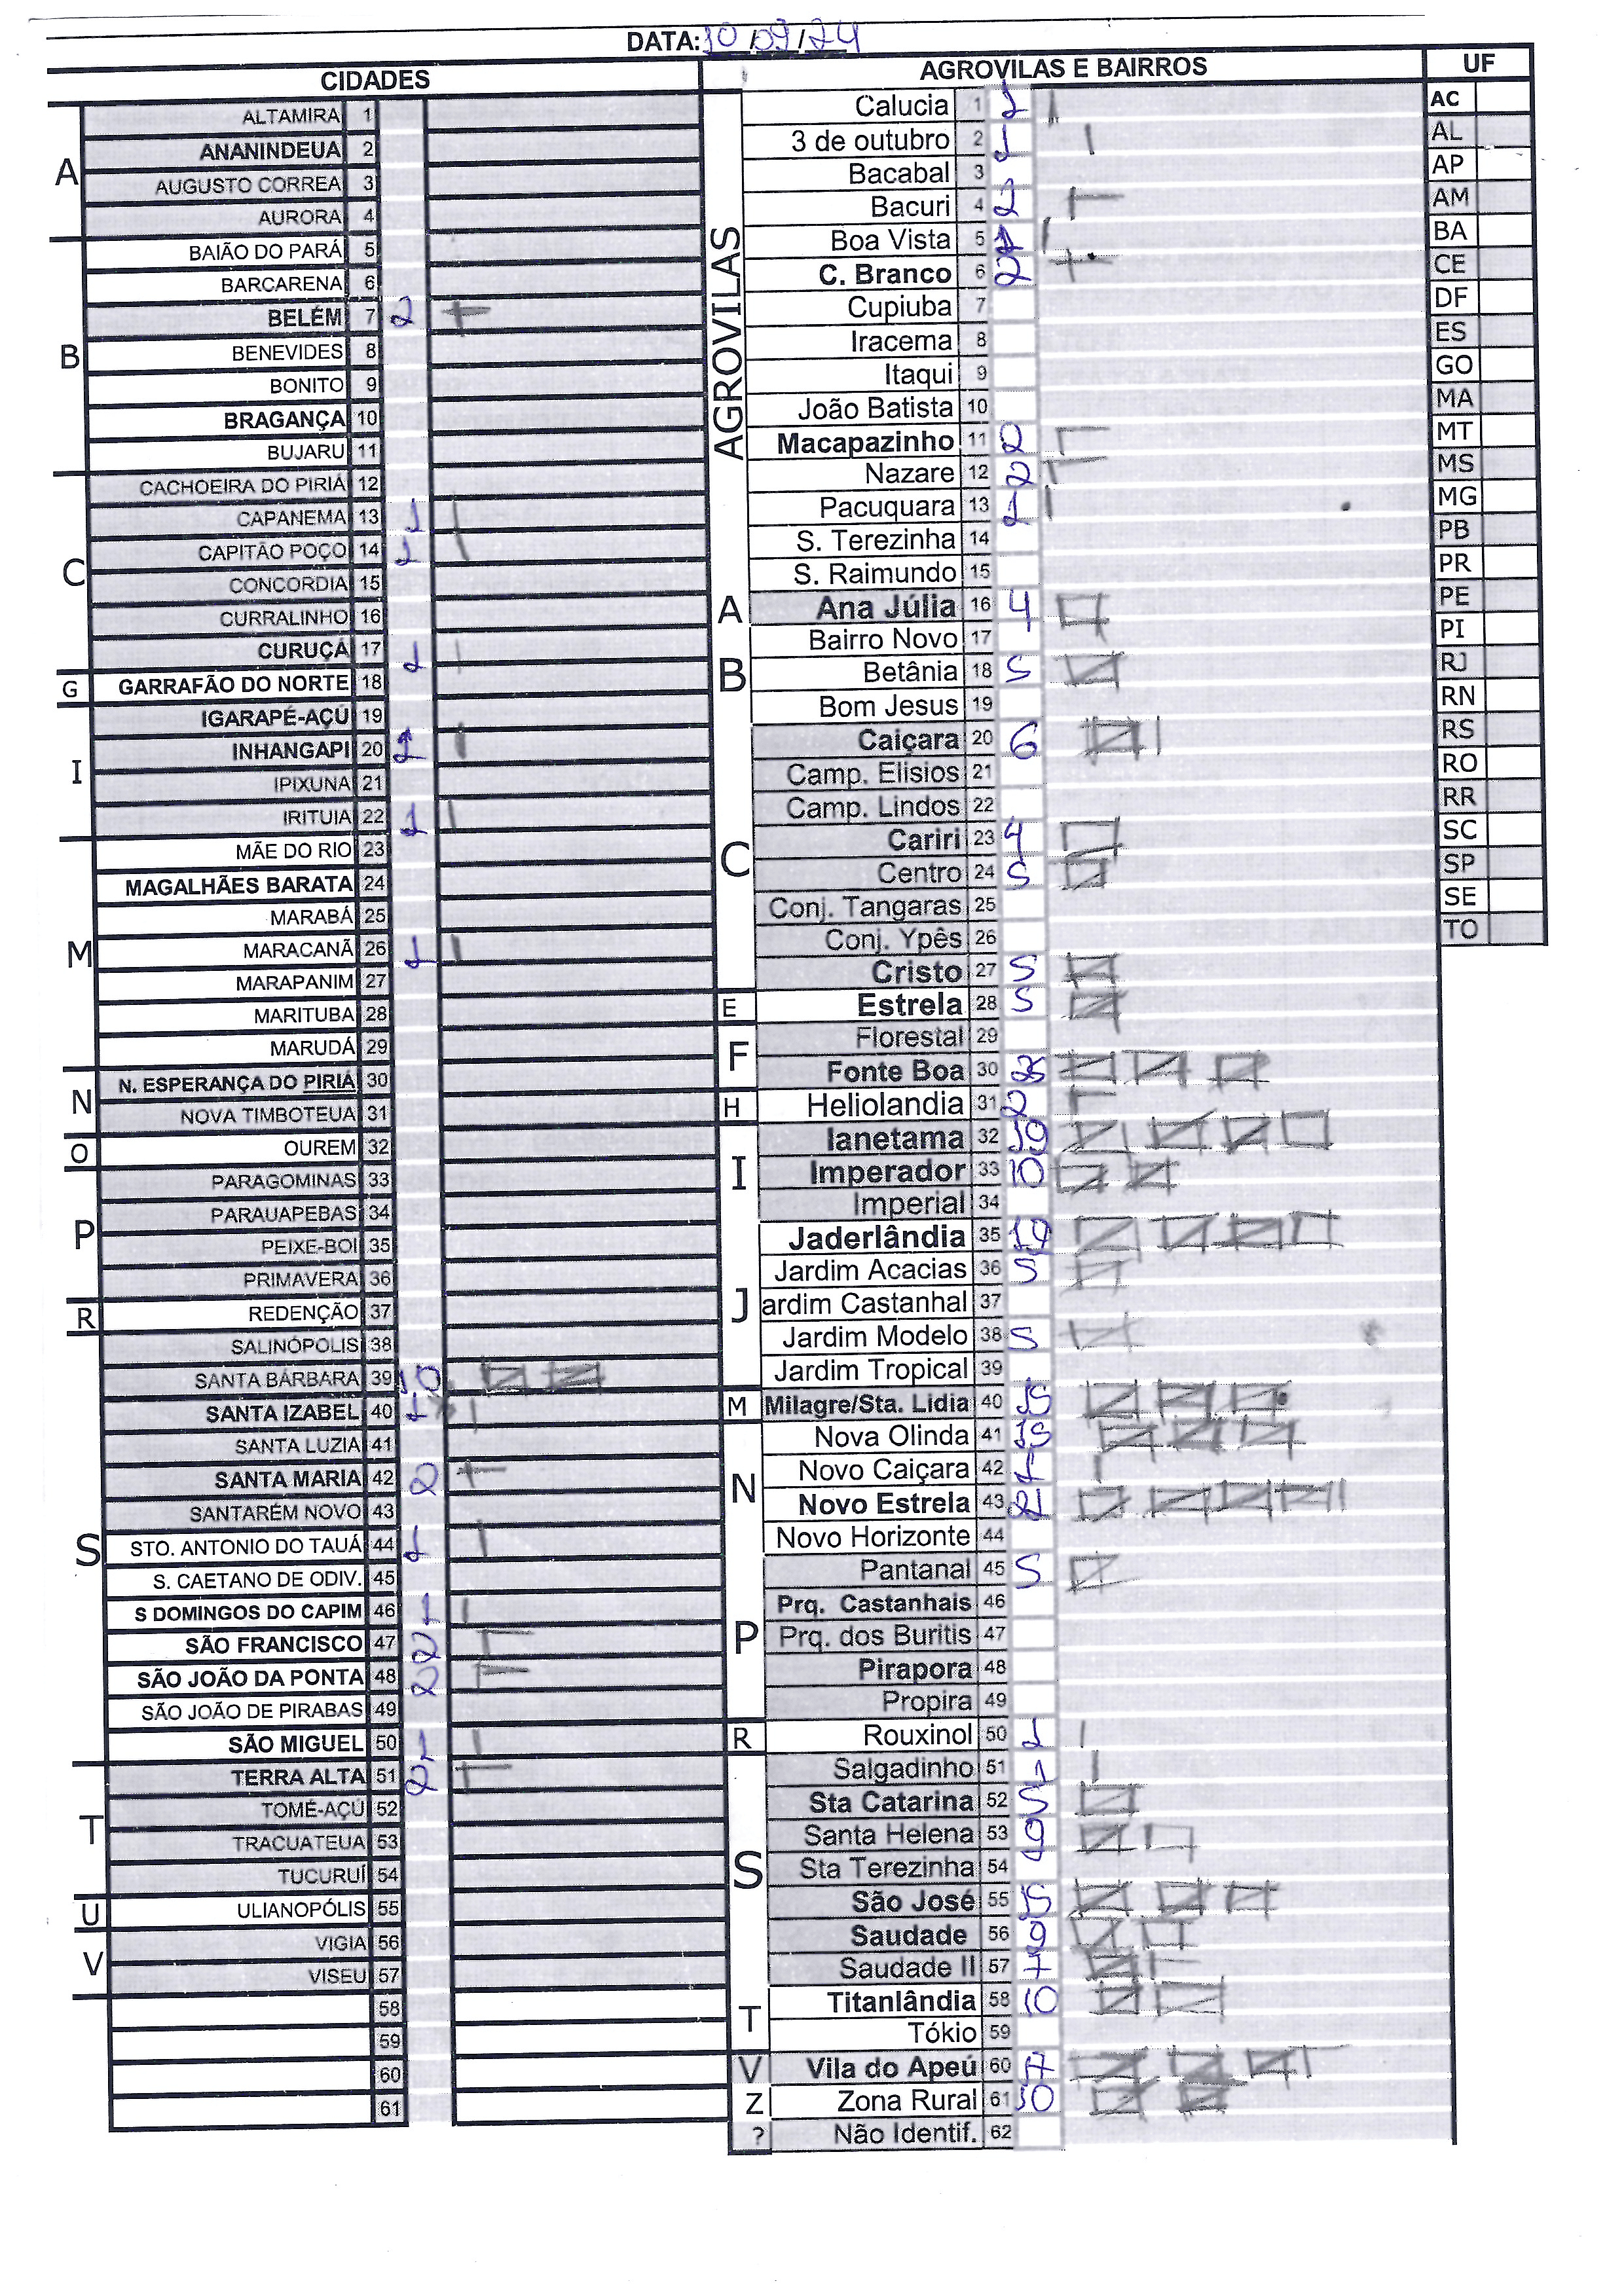 DATA: 10/09/24
CIDADES
A
ALTAMIRA 1
ANANINDEUA 2
AUGUSTO CORREA 3
AURORA 4
B
BAIÃO DO PARÁ 5
BARCARENA 6
BELÉM 7 2
BENEVIDES 8
BONITO 9
BRAGANÇA 10
BUJARU 11
C
CACHOEIRA DO PIRIÁ 12
CAPANEMA 13 1
CAPITÃO POÇO 14 1
CONCORDIA 15
CURRALINHO 16
CURUÇÁ 17 1
G
GARRAFÃO DO NORTE 18
I
IGARAPÉ-AÇÚ 19
INHANGAPI 20 1
IPIXUNA 21
IRITUIA 22 1
M
MÃE DO RIO 23
MAGALHÃES BARATA 24
MARABÁ 25
MARACANÃ 26 1
MARAPANIM 27
MARITUBA 28
MARUDÁ 29
N
N. ESPERANÇA DO PIRIÁ 30
NOVA TIMBOTEUA 31
O
OUREM 32
P
PARAGOMINAS 33
PARAUAPEBAS 34
PEIXE-BOI 35
PRIMAVERA 36
R
REDENÇÃO 37
S
SALINÓPOLIS 38
SANTA BÁRBARA 39 10
SANTA IZABEL 40 1
SANTA LUZIA 41
SANTA MARIA 42 2
SANTARÉM NOVO 43
STO. ANTONIO DO TAUÁ 44 1
S. CAETANO DE ODIV. 45
S DOMINGOS DO CAPIM 46 1
SÃO FRANCISCO 47 2
SÃO JOÃO DA PONTA 48 2
SÃO JOÃO DE PIRABAS 49
SÃO MIGUEL 50 1
T
TERRA ALTA 51 2
TOMÉ-AÇÚ 52
TRACUATEUA 53
TUCURUÍ 54
U
ULIANOPÓLIS 55
V
VIGIA 56
VISEU 57
58
59
60
61
AGROVILAS E BAIRROS
AGROVILAS
Calucia 1 1
3 de outubro 2 1
Bacabal 3
Bacuri 4 2
Boa Vista 5 1
C. Branco 6 2
Cupiuba 7
Iracema 8
Itaqui 9
João Batista 10
Macapazinho 11 2
Nazare 12 2
Pacuquara 13 1
S. Terezinha 14
S. Raimundo 15
A
Ana Júlia 16 4
B
Bairro Novo 17
Betânia 18 5
Bom Jesus 19
C
Caiçara 20 6
Camp. Elisios 21
Camp. Lindos 22
Cariri 23 4
Centro 24 5
Conj. Tangaras 25
Conj. Ypês 26
Cristo 27 5
E
Estrela 28 5
F
Florestal 29
Fonte Boa 30
H
Heliolandia 31 2
I
Ianetama 32 19
Imperador 33 10
Imperial 34
J
Jaderlândia 35 19
Jardim Acacias 36 5
ardim Castanhal 37
Jardim Modelo 38 5
Jardim Tropical 39
M
Milagre/Sta. Lidia 40 15
N
Nova Olinda 41 15
Novo Caiçara 42 1
Novo Estrela 43 21
Novo Horizonte 44
P
Pantanal 45 5
Prq. Castanhais 46
Prq. dos Buritis 47
Pirapora 48
Propira 49
R
Rouxinol 50 1
S
Salgadinho 51 1
Sta Catarina 52 5
Santa Helena 53 9
Sta Terezinha 54
São José 55 15
Saudade 56 9
Saudade II 57 7
T
Titanlândia 58 10
Tókio 59
V
Vila do Apeú 60 17
Z
Zona Rural 61 10
?
Não Identif. 62
UF
AC
AL
AP
AM
BA
CE
DF
ES
GO
MA
MT
MS
MG
PB
PR
PE
PI
RJ
RN
RS
RO
RR
SC
SP
SE
TO